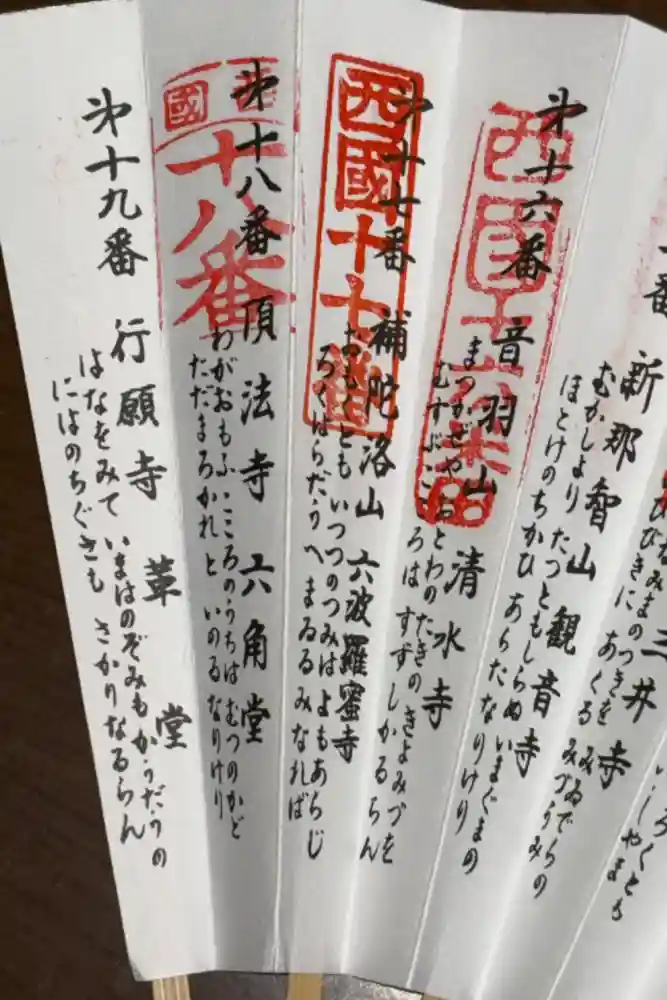 番
三井寺
ひびきに あくる みづうみの
第
番
新那智山 観音寺
むかしより たつともしらぬ いまぐまの
ほとけのちかひ あらたなりけり
西国十六番
第十六番
音羽山 清水寺
まつかぜや おとわのたきの きよみづを
むすぶこころは すずしかるらん
西國十七番
第十七番
補陀洛山 六波羅蜜寺
おもくとも いつつのつみは よもあらじ
ろくはらだうへ まゐるみなれば
國
十八番
第十八番
頂法寺 六角堂
わがおもふ こころのうちは むつのかど
ただまろかれ と いのる なりけり
第十九番
行願寺 革堂
はなをみて いまはのぞみも かうだうの
にはのちぐさも さかりなるらん